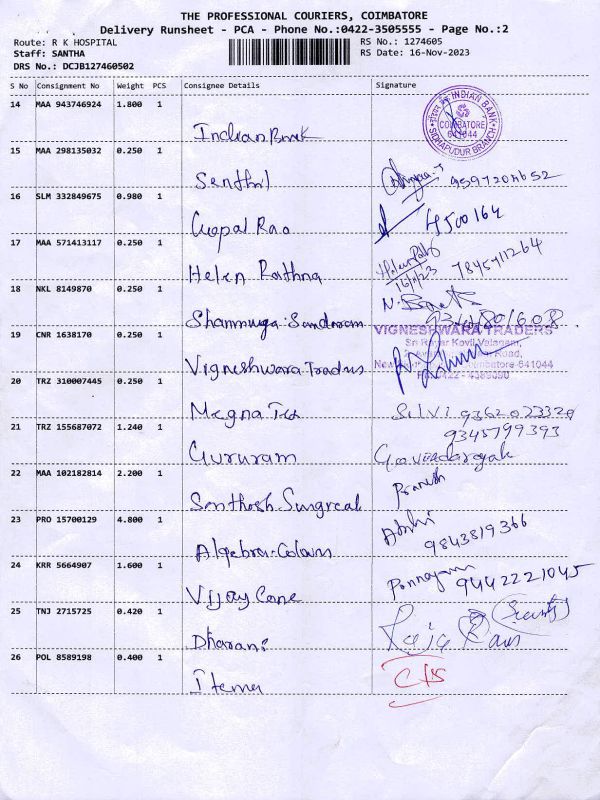 THE PROFESSIONAL COURIERS, COIMBATORE
Delivery Runsheet - PCA - Phone No.:0422-3505555 - Page No.:2
Route: R K HOSPITAL RS No.: 1274605
Staff: SANTHA RS Date: 16-Nov-2023
DRS No.: DCJB127460502
S No Consignment No Weight PCS Consignee Details Signature
14 MAA 943746924 1.800 1
Indian Bank
INDIAN BANK
COIMBATORE
641044
SIDHAPUDUR BRANCH
15 MAA 298135032 0.250 1
Senthil
16 SLM 332849675 0.980 1
Gopal Rao 4500164
17 MAA 571413117 0.250 1
Helen Rathna 16/11/23 7845711264
18 NKL 8149870 0.250 1
Shanmuga Sundaram
19 CNR 1638170 0.250 1
VIGNESHWARA TRADERS
Vigneshwara Traders
20 TRZ 310007445 0.250 1
Megna Tex Silvi 9362023320
21 TRZ 155687072 1.240 1
9345799393
Gururam
22 MAA 102182814 2.200 1
Santhosh Surgical Pranesh
23 PRO 15700129 4.800 1
Algebra 9843819366
24 KRR 5664907 1.600 1
Vijay 9442221045
25 TNJ 2715725 0.420 1
Dharani Raja Ram
26 POL 8589198 0.400 1